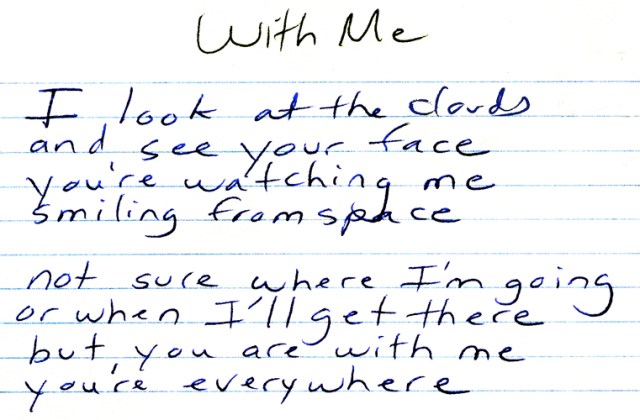 With Me
I look at the clouds
and see your face
you're watching me
smiling from space
not sure where I'm going
or when I'll get there
but you are with me
you're everywhere